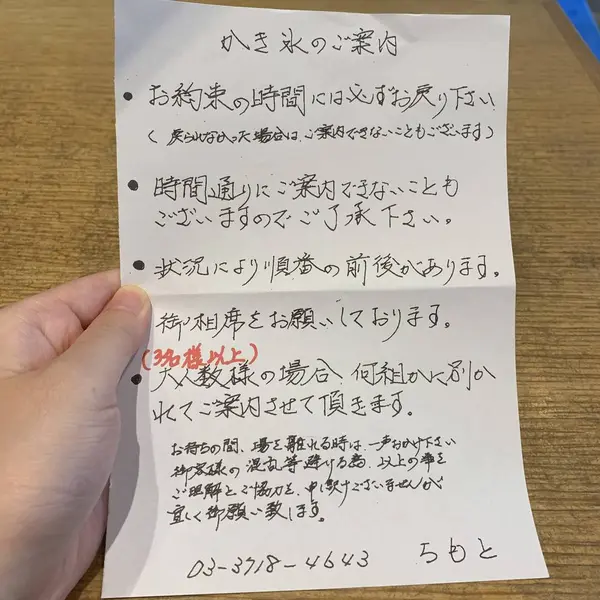 かき氷のご案内
• お約束の時間には必ずお戻り下さい
(戻られなかった場合は、ご案内できないこともございます)
• 時間通りにご案内できないことも
ございますのでご了承下さい。
• 状況により順番の前後があります。
御相席をお願いしております。
(3名様以上)
• 大人数様の場合、何組かに別か
れてご案内させて頂きます。
お待ちの間、場を離れる時は、一声おかけ下さい
御客様の混乱等避ける為、以上の事を
ご理解とご協力を、申し訳ございませんが
宜しく御願い致します。
03-3718-4643 ちもと